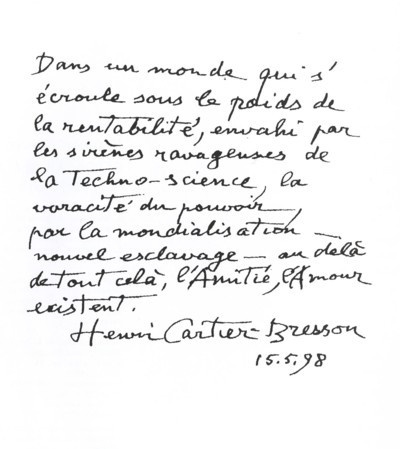 Dans un monde qui s'
écroule sous le poids de
la rentabilité, envahi par
les sirènes ravageuses de
la Techno-science, la
voracité du pouvoir,
par la mondialisation —
nouvel esclavage — au delà
de tout celà, l'Amitié, l'Amour
existent.
Henri Cartier-Bresson
15.5.98